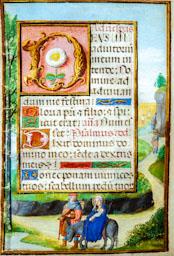 Ad vesperas
DEVS IN
adiutoriu
meum in
tende: Do
mine ad
adiuuan
dum me festina.
Gloria pri & filio: et
sicut erat. aña. Dum e
sset: Psalmus
Dixit dominus do
mino meo: sede a dextris
meis
Donec ponam inimicos
tuos: scabellum pedum tuo